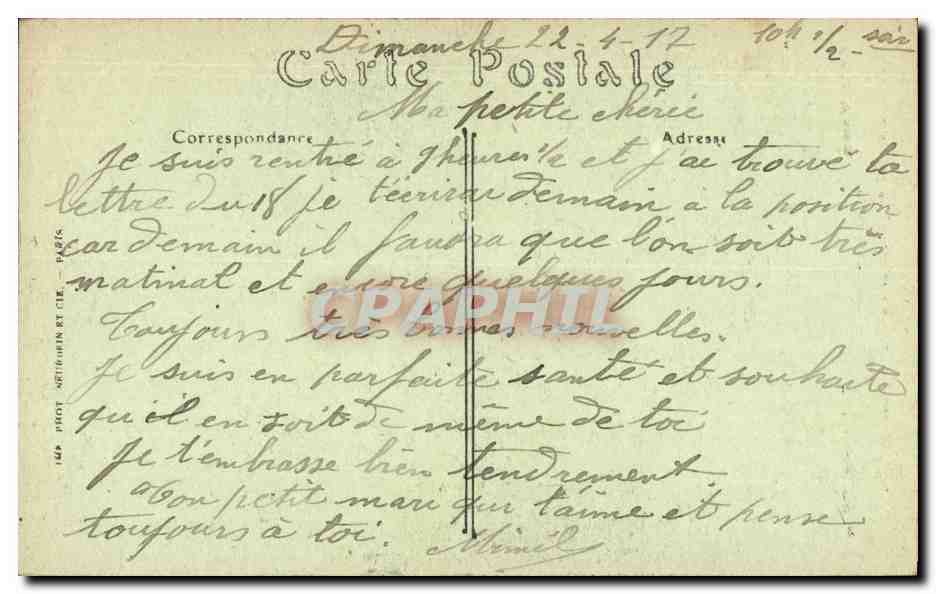 Dimanche 22-4-17 10h 1/2 soir
Carte Postale
Ma petite chérie
Correspondance
Adresse
Je suis rentré à 9 heures 1/2 et j'ai trouvé ta
lettre du 18 je t'écrirai demain à la position
car demain il faudra que l'on soit très
matinal et encore quelques jours.
CPAPHIL
Toujours très bonnes nouvelles.
Je suis en parfaite santé et souhaite
qu'il en soit de même de toi
Je t'embrasse bien tendrement.
Ton petit mari qui t'aime et pense
toujours à toi.
Mimil
IMP PHOT NEURDEIN ET CIE. - PARIS